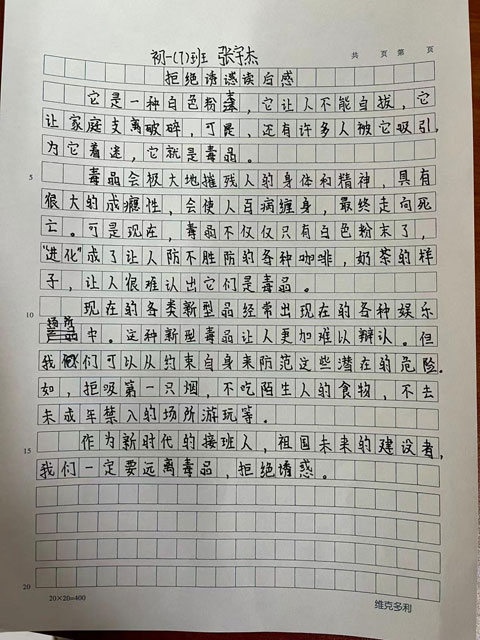 初一(7)班 张宇杰
共 页 第 页
拒绝诱惑读后感
它是一种白色粉末，它让人不能自拔，它
让家庭支离破碎，可是，还有许多人被它吸引，
为它着迷，它就是毒品。
5
毒品会极大地摧残人的身体和精神，具有
很大的成瘾性，会使人百病缠身，最终走向死
亡。可是现在，毒品不仅仅只有白色粉末了，
"进化"成了让人防不胜防的各种咖啡，奶茶的样
子，让人很难认出它们是毒品。
10
现在的各类新型品经常出现在的各种娱乐
场所中。这种新型毒品让人更加难以辩认。但
我们可以从约束自身来防范这些潜在的危险。
如，拒吸第一只烟，不吃陌生人的食物，不去
未成年禁入的场所游玩等。
15
作为新时代的接班人，祖国未来的建设者，
我们一定要远离毒品，拒绝诱惑。
20
20×20=400
维克多利